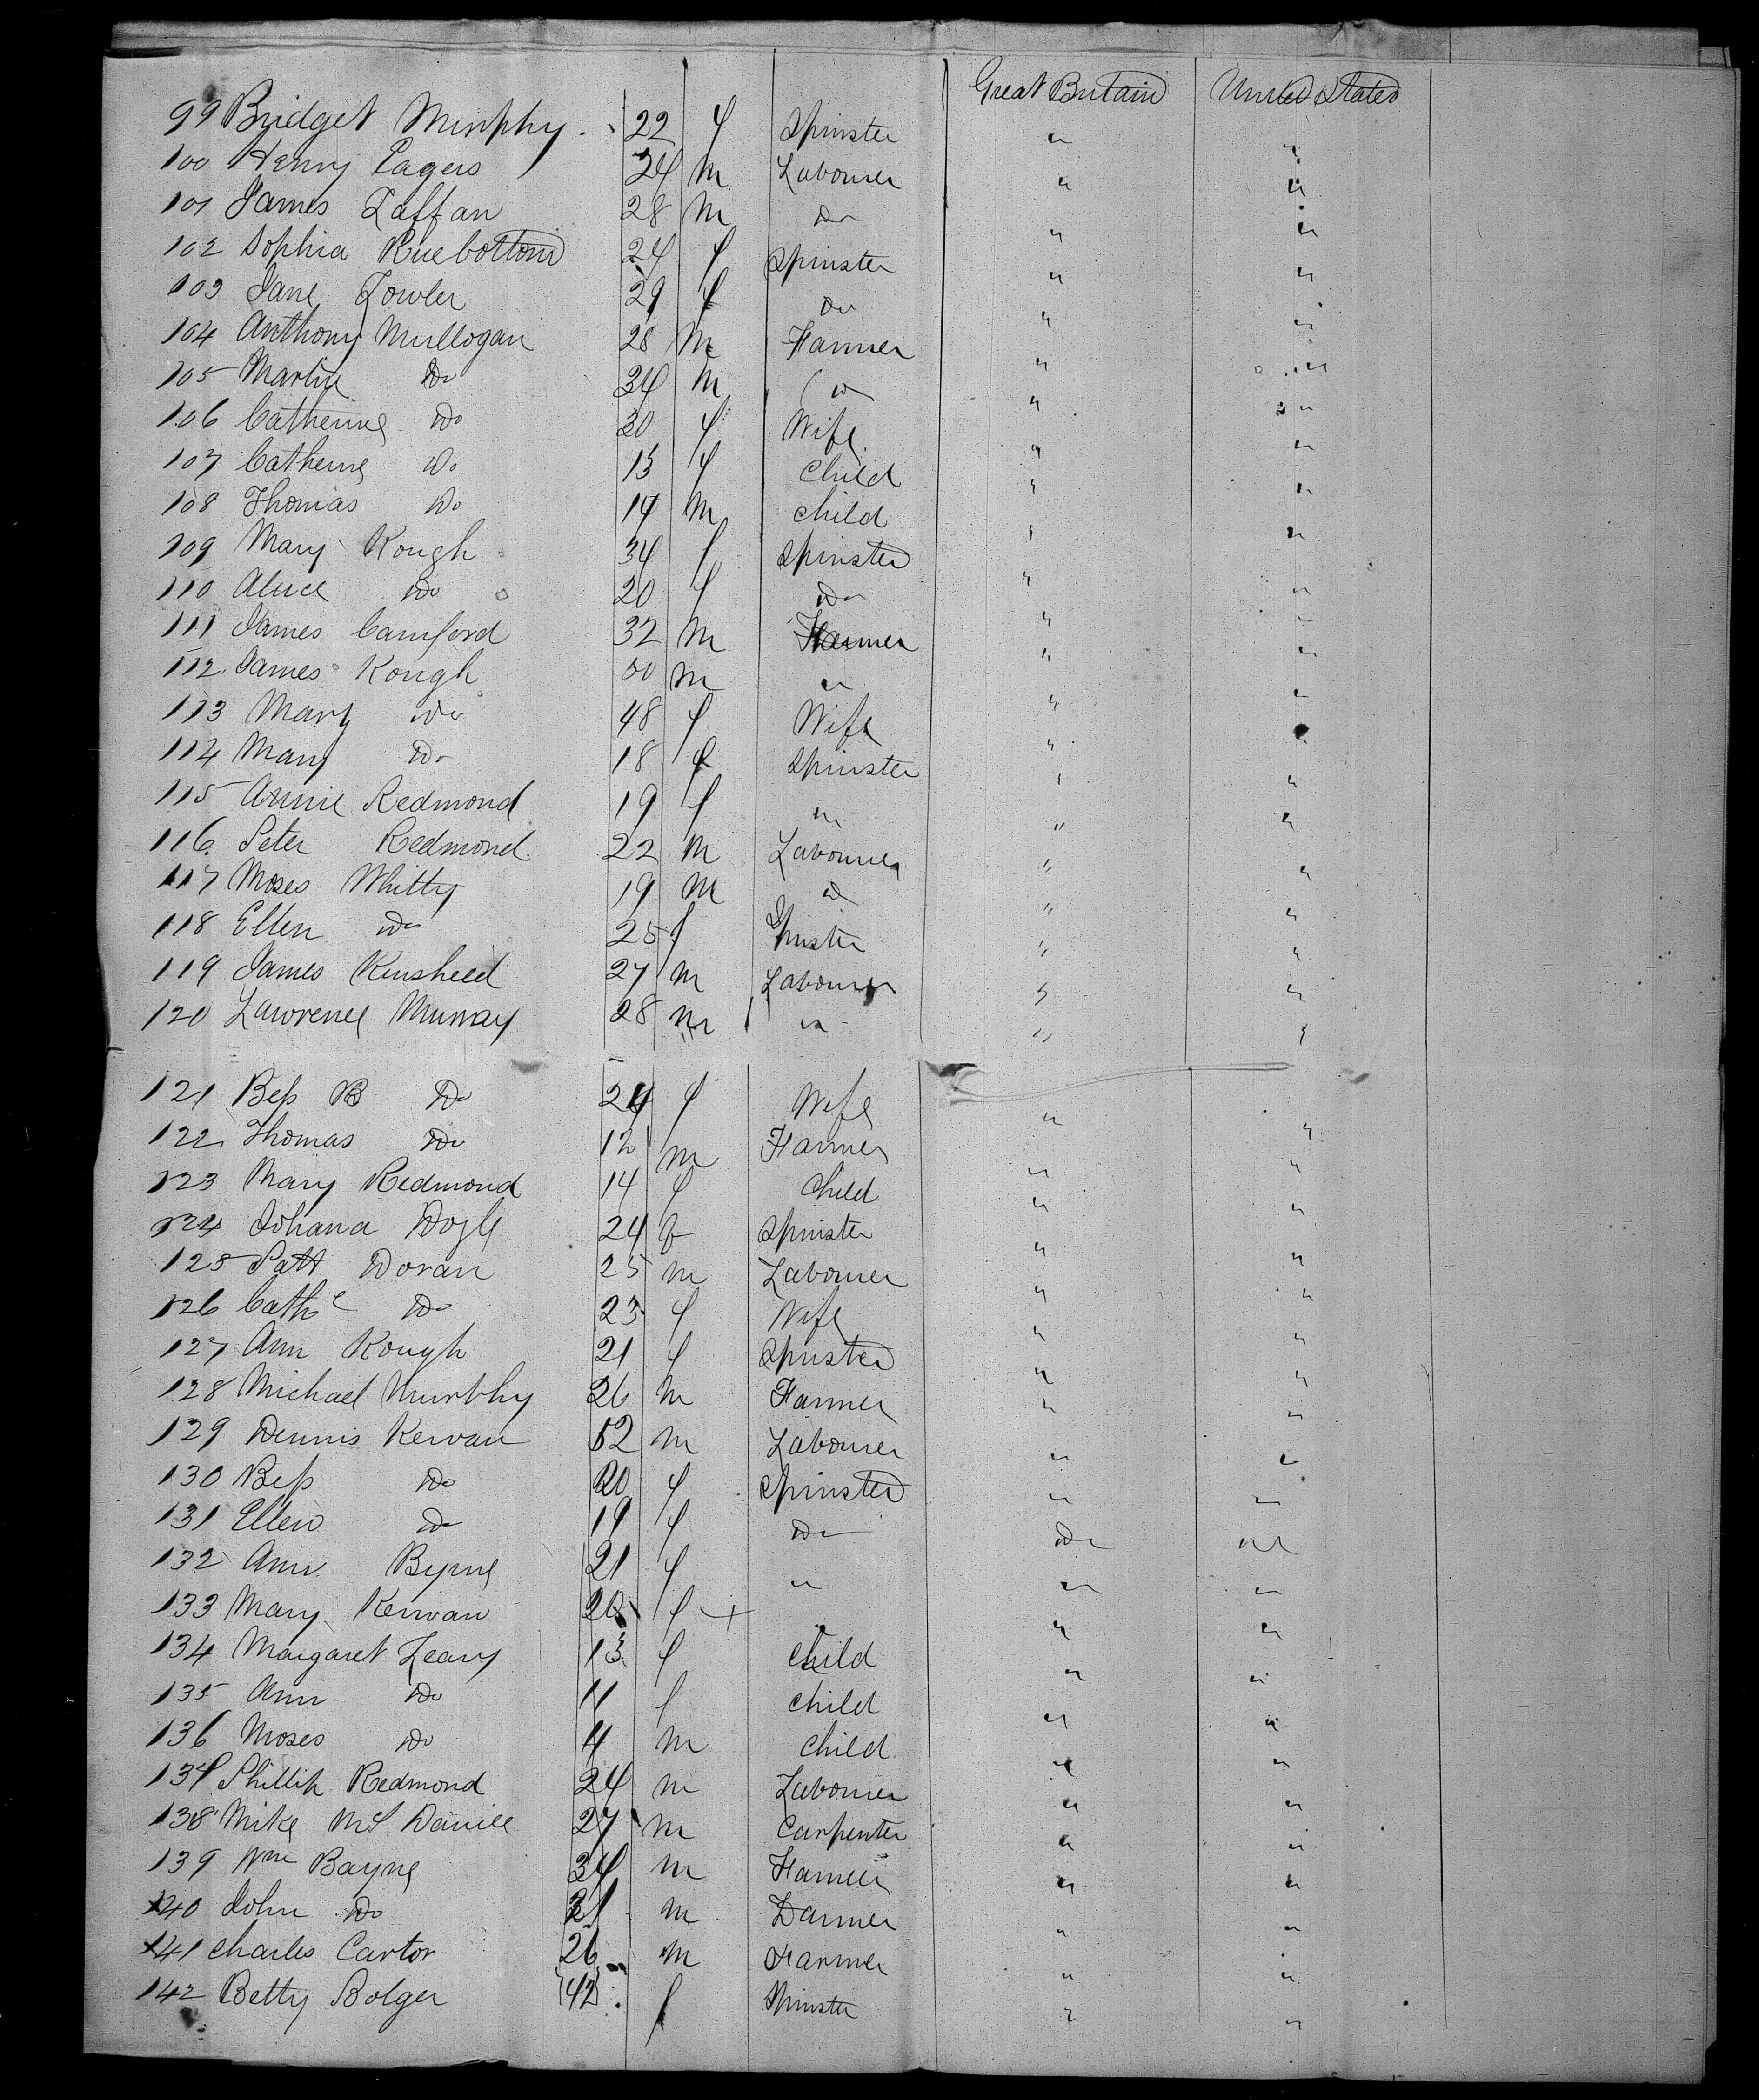 Great Britain United States
99 Bridget Murphy 22 f Spinster " "
100 Henry Eagers 24 m Labourer " "
101 James Laffan 28 m Do " "
102 Sophia Ruebottom 24 f Spinster " "
103 Jane Fowler 29 f Do " "
104 Anthony Mullogan 28 m Farmer " "
105 Martin Do 34 m Do " "
106 Catherine Do 30 f Wife " "
107 Catherine Do 13 f Child " "
108 Thomas Do 14 m Child " "
109 Mary Kough 34 f Spinster " "
110 Alice Do 20 f Do " "
111 James Camford 32 m Farmer " "
112 James Kough 50 m " " "
113 Mary Do 48 f Wife " "
114 Mary Do 18 f Spinster " "
115 Annie Redmond 19 f " " "
116 Peter Redmond 22 m Labourer " "
117 Moses Whitty 19 m Do " "
118 Ellen Do 25 f Spinster " "
119 James 27 m Labourer " "
120 Lawrence Murray 28 m " " "
121 Bess B Do 24 f Wife " "
122 Thomas Do 12 m Farmer " "
123 Mary Redmond 14 f Child " "
124 Johana Doyle 24 f Spinster " "
125 Patt Doran 25 m Labourer " "
126 Cathe Do 23 f Wife " "
127 Ann Kough 21 f Spinster " "
128 Michael Murphy 26 m Farmer " "
129 Dennis Kervan 52 m Labourer " "
130 Bess Do 20 f Spinster " "
131 Ellen Do 19 f Do Do Do
132 Ann Byrne 21 f " " "
133 Mary Kerwan 20 f + " " "
134 Margaret Leary 13 f Child " "
135 Ann Do 11 f Child " "
136 Moses Do 4 m Child " "
137 Phillip Redmond 24 m Labourer " "
138 Mike Mc Daniel 27 m Carpenter " "
139 Wm Bayne 34 m Farmer " "
140 John Do 21 m Farmer " "
141 Charles Carton 26 m Farmer " "
142 Betty Bolger 42 f Spinster " "